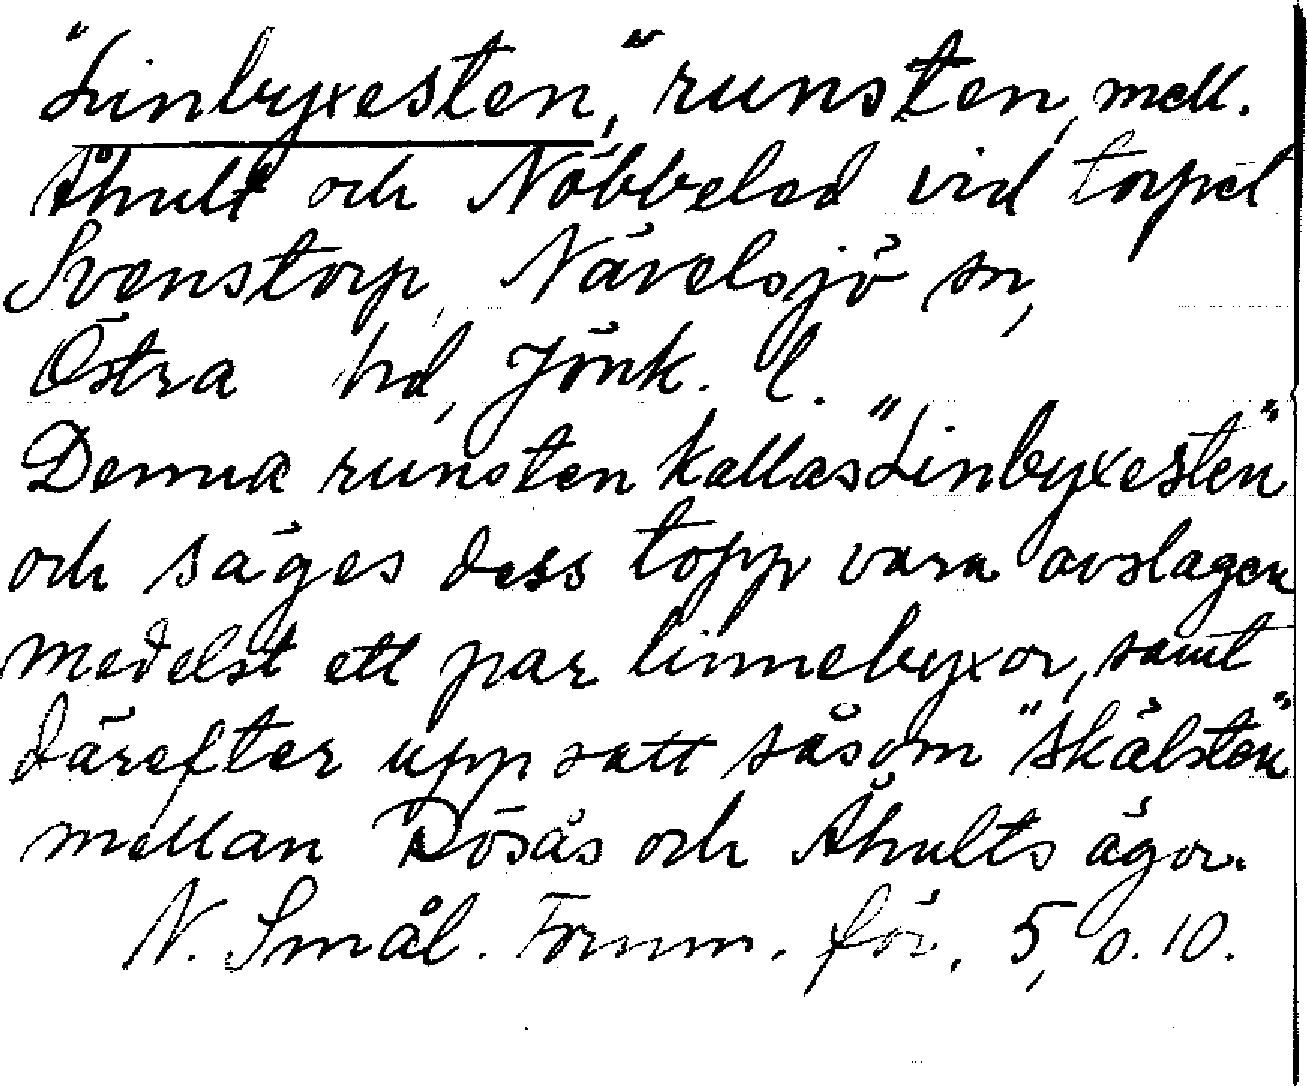 "Linbyxesten," runsten, mell.
Åhult och Nöbbeled vid torpet
Svenstorp, Nävelsjö sn,
Östra hd, Jönk. l.
Denna runsten kallas "Linbyxesten"
och säges dess topp vara avslagen
medelst ett par linnebyxor, samt
därefter uppsatt såsom "skälsten"
mellan Rösås och Åhults ägor.
N. Smål. Fornm. för. 5, s. 10.